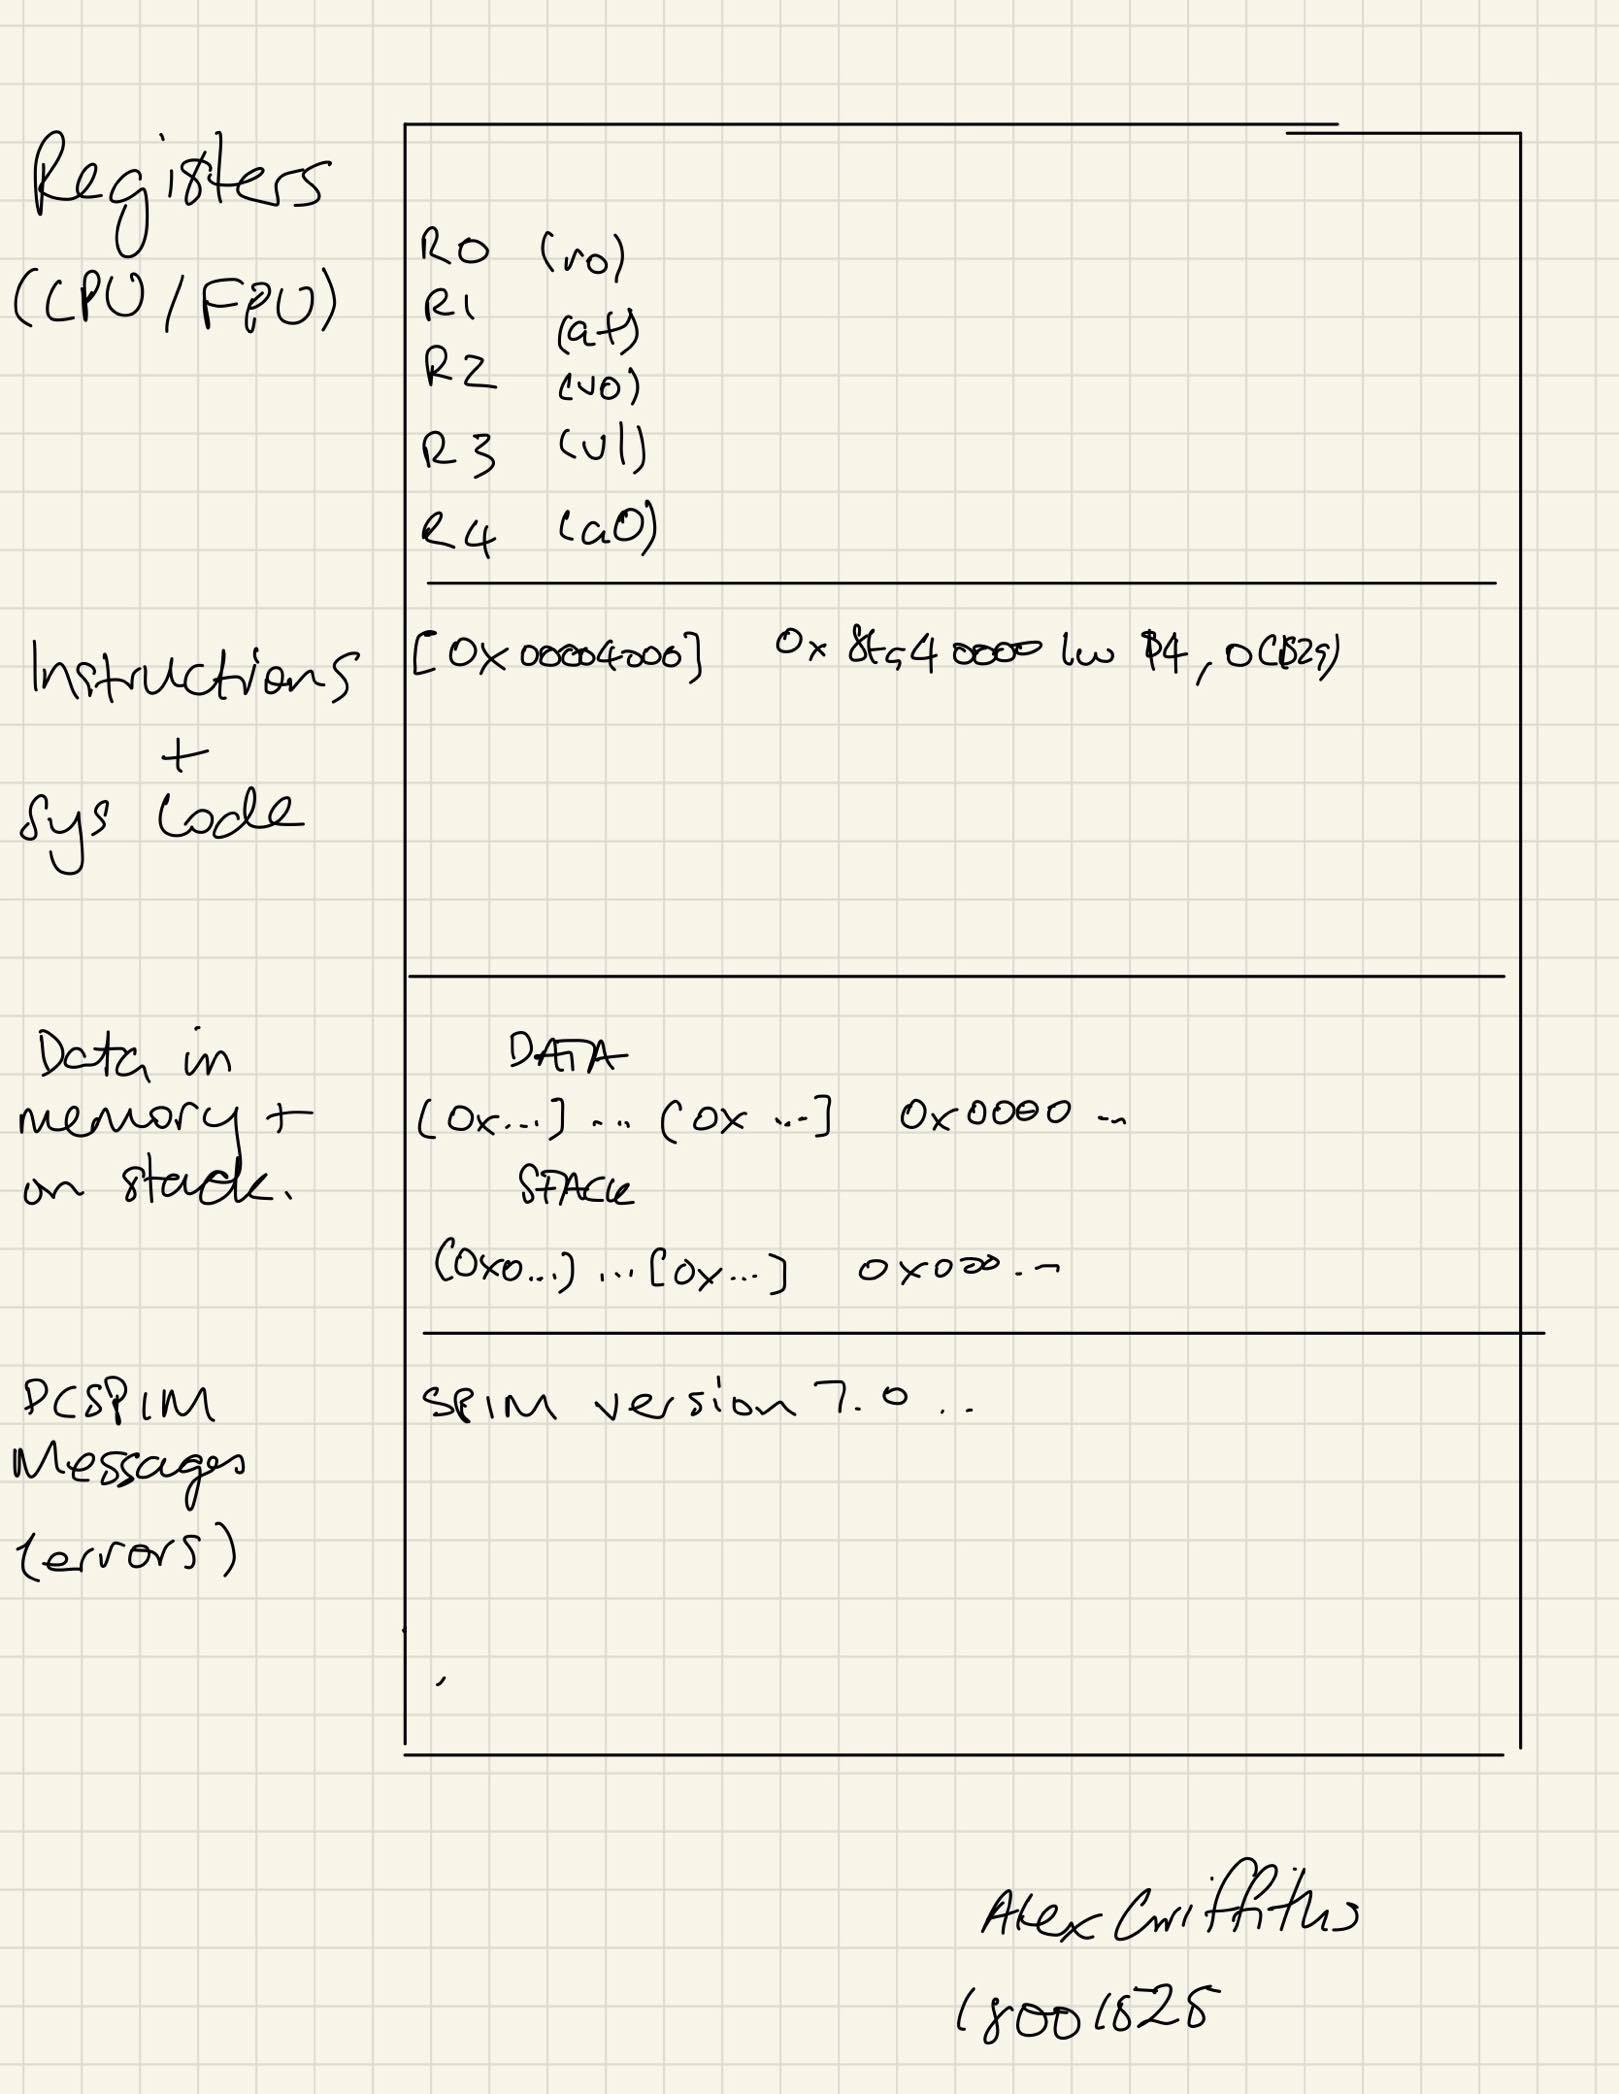 Registers
(CPU/FPU)
R0 (r0)
R1 (at)
R2 (v0)
R3 (v1)
R4 (a0)
Instructions
+
Sys Code
[0x00004000] lw $4, 0($29)
Data in
memory +
on stack.
DATA
[0x...] ... [0x...] 0x0000 ...
STACK
[0x0...] ... [0x...] 0x000...
PCSPIM
Messages
(errors)
SPIM version 7.0 ..
Alex Griffiths